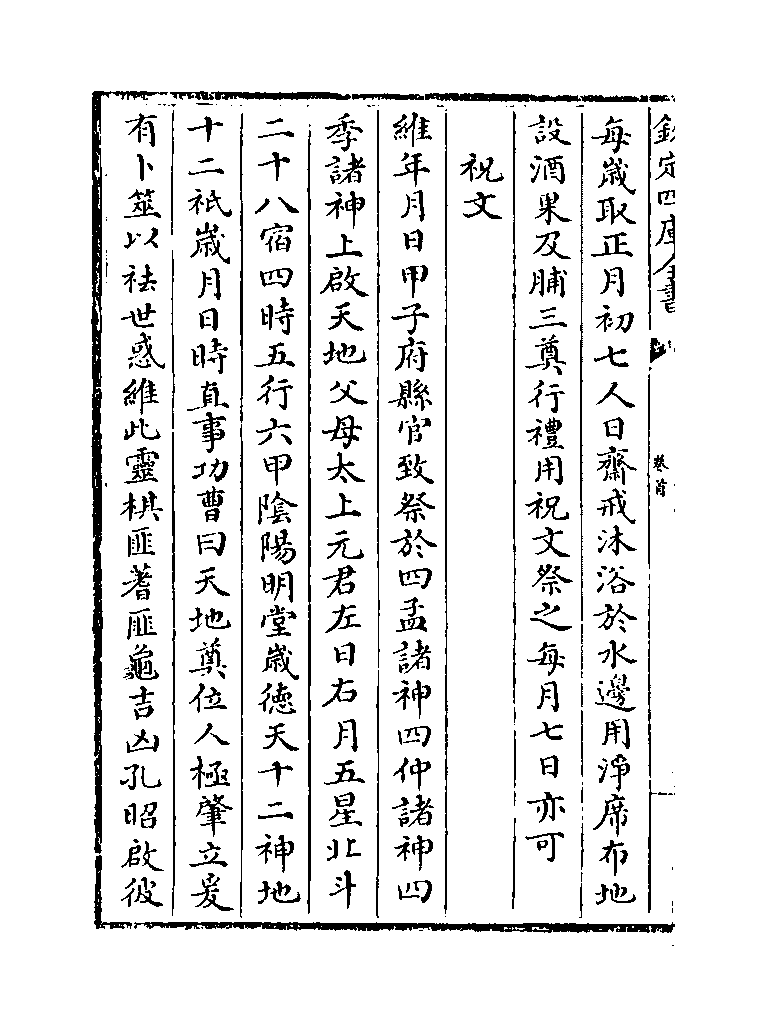 欽定四庫全書
卷首
每歲取正月初七人日齋戒沐浴於水邊用淨席布地
設酒果及脯三奠行禮用祝文祭之每月七日亦可
祝文
維年月日甲子府縣官致祭於四孟諸神四仲諸神四
季諸神上啟天地父母太上元君左日右月五星北斗
二十八宿四時五行六甲陰陽明堂歲德天十二神地
十二祇歲月日時直事功曹曰天地奠位人極肇立爰
有卜筮以祛世惑維此靈棋匪蓍匪龜吉凶孔昭啟彼